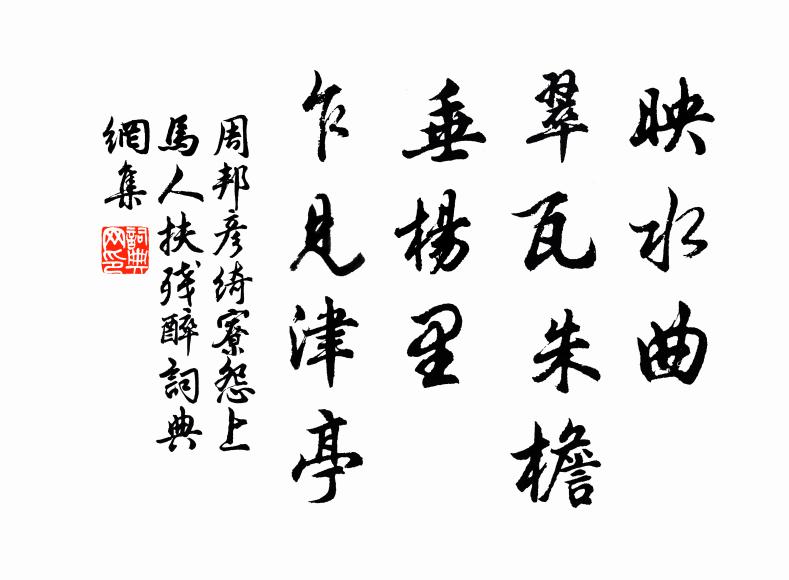 映水曲
翠瓦朱檐
垂楊里
乍見津亭
周邦彦绮寮怨上
馬人扶殘醉詞典
網集
詞典
网印